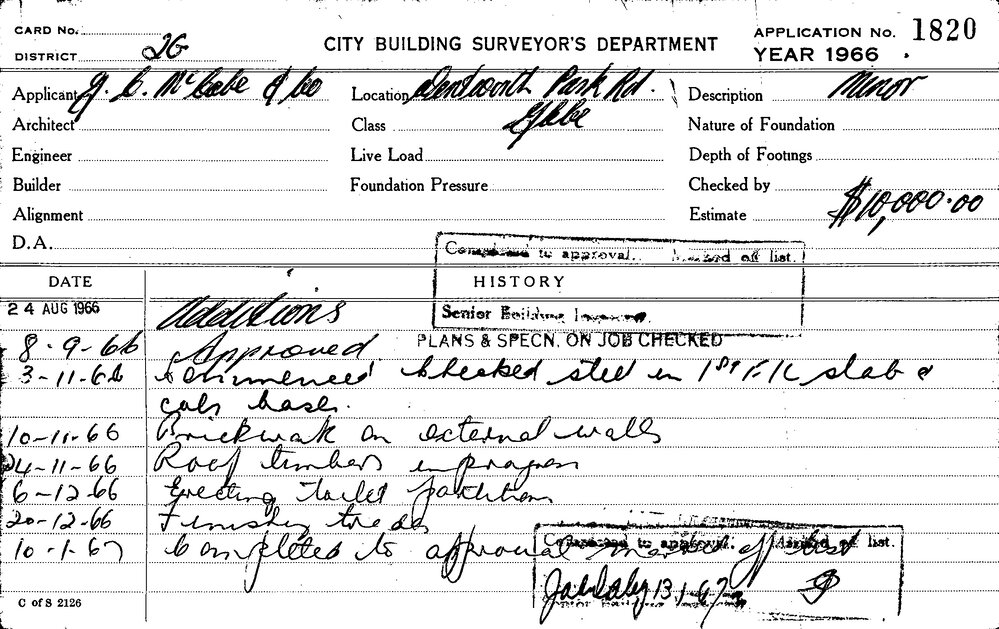 CARD No.
DISTRICT 2G
CITY BUILDING SURVEYOR'S DEPARTMENT
APPLICATION No. 1820
YEAR 1966
Applicant J. C. McCabe & Co
Location Wentworth Park Rd.
Glebe
Description Minor
Architect
Class
Nature of Foundation
Engineer
Live Load
Depth of Footings
Builder
Foundation Pressure
Checked by
Alignment
Estimate $10,000.00
D.A.
Completed to approval. Marked off list.
Senior Building Inspector.
DATE
HISTORY
24 AUG 1966 Additions
8-9-66 Approved. PLANS & SPECN. ON JOB CHECKED
3-11-66 Commenced checked steel in 1st Flr slab &
cols bases.
10-11-66 Brickwork on external walls
24-11-66 Roof timbers in progress
6-12-66 Erecting toilet partitions
20-12-66 Finishing trades
10-1-67 Completed to approval marked off list
Completed to approval. Marked off list.
13.1.67
C of S 2126